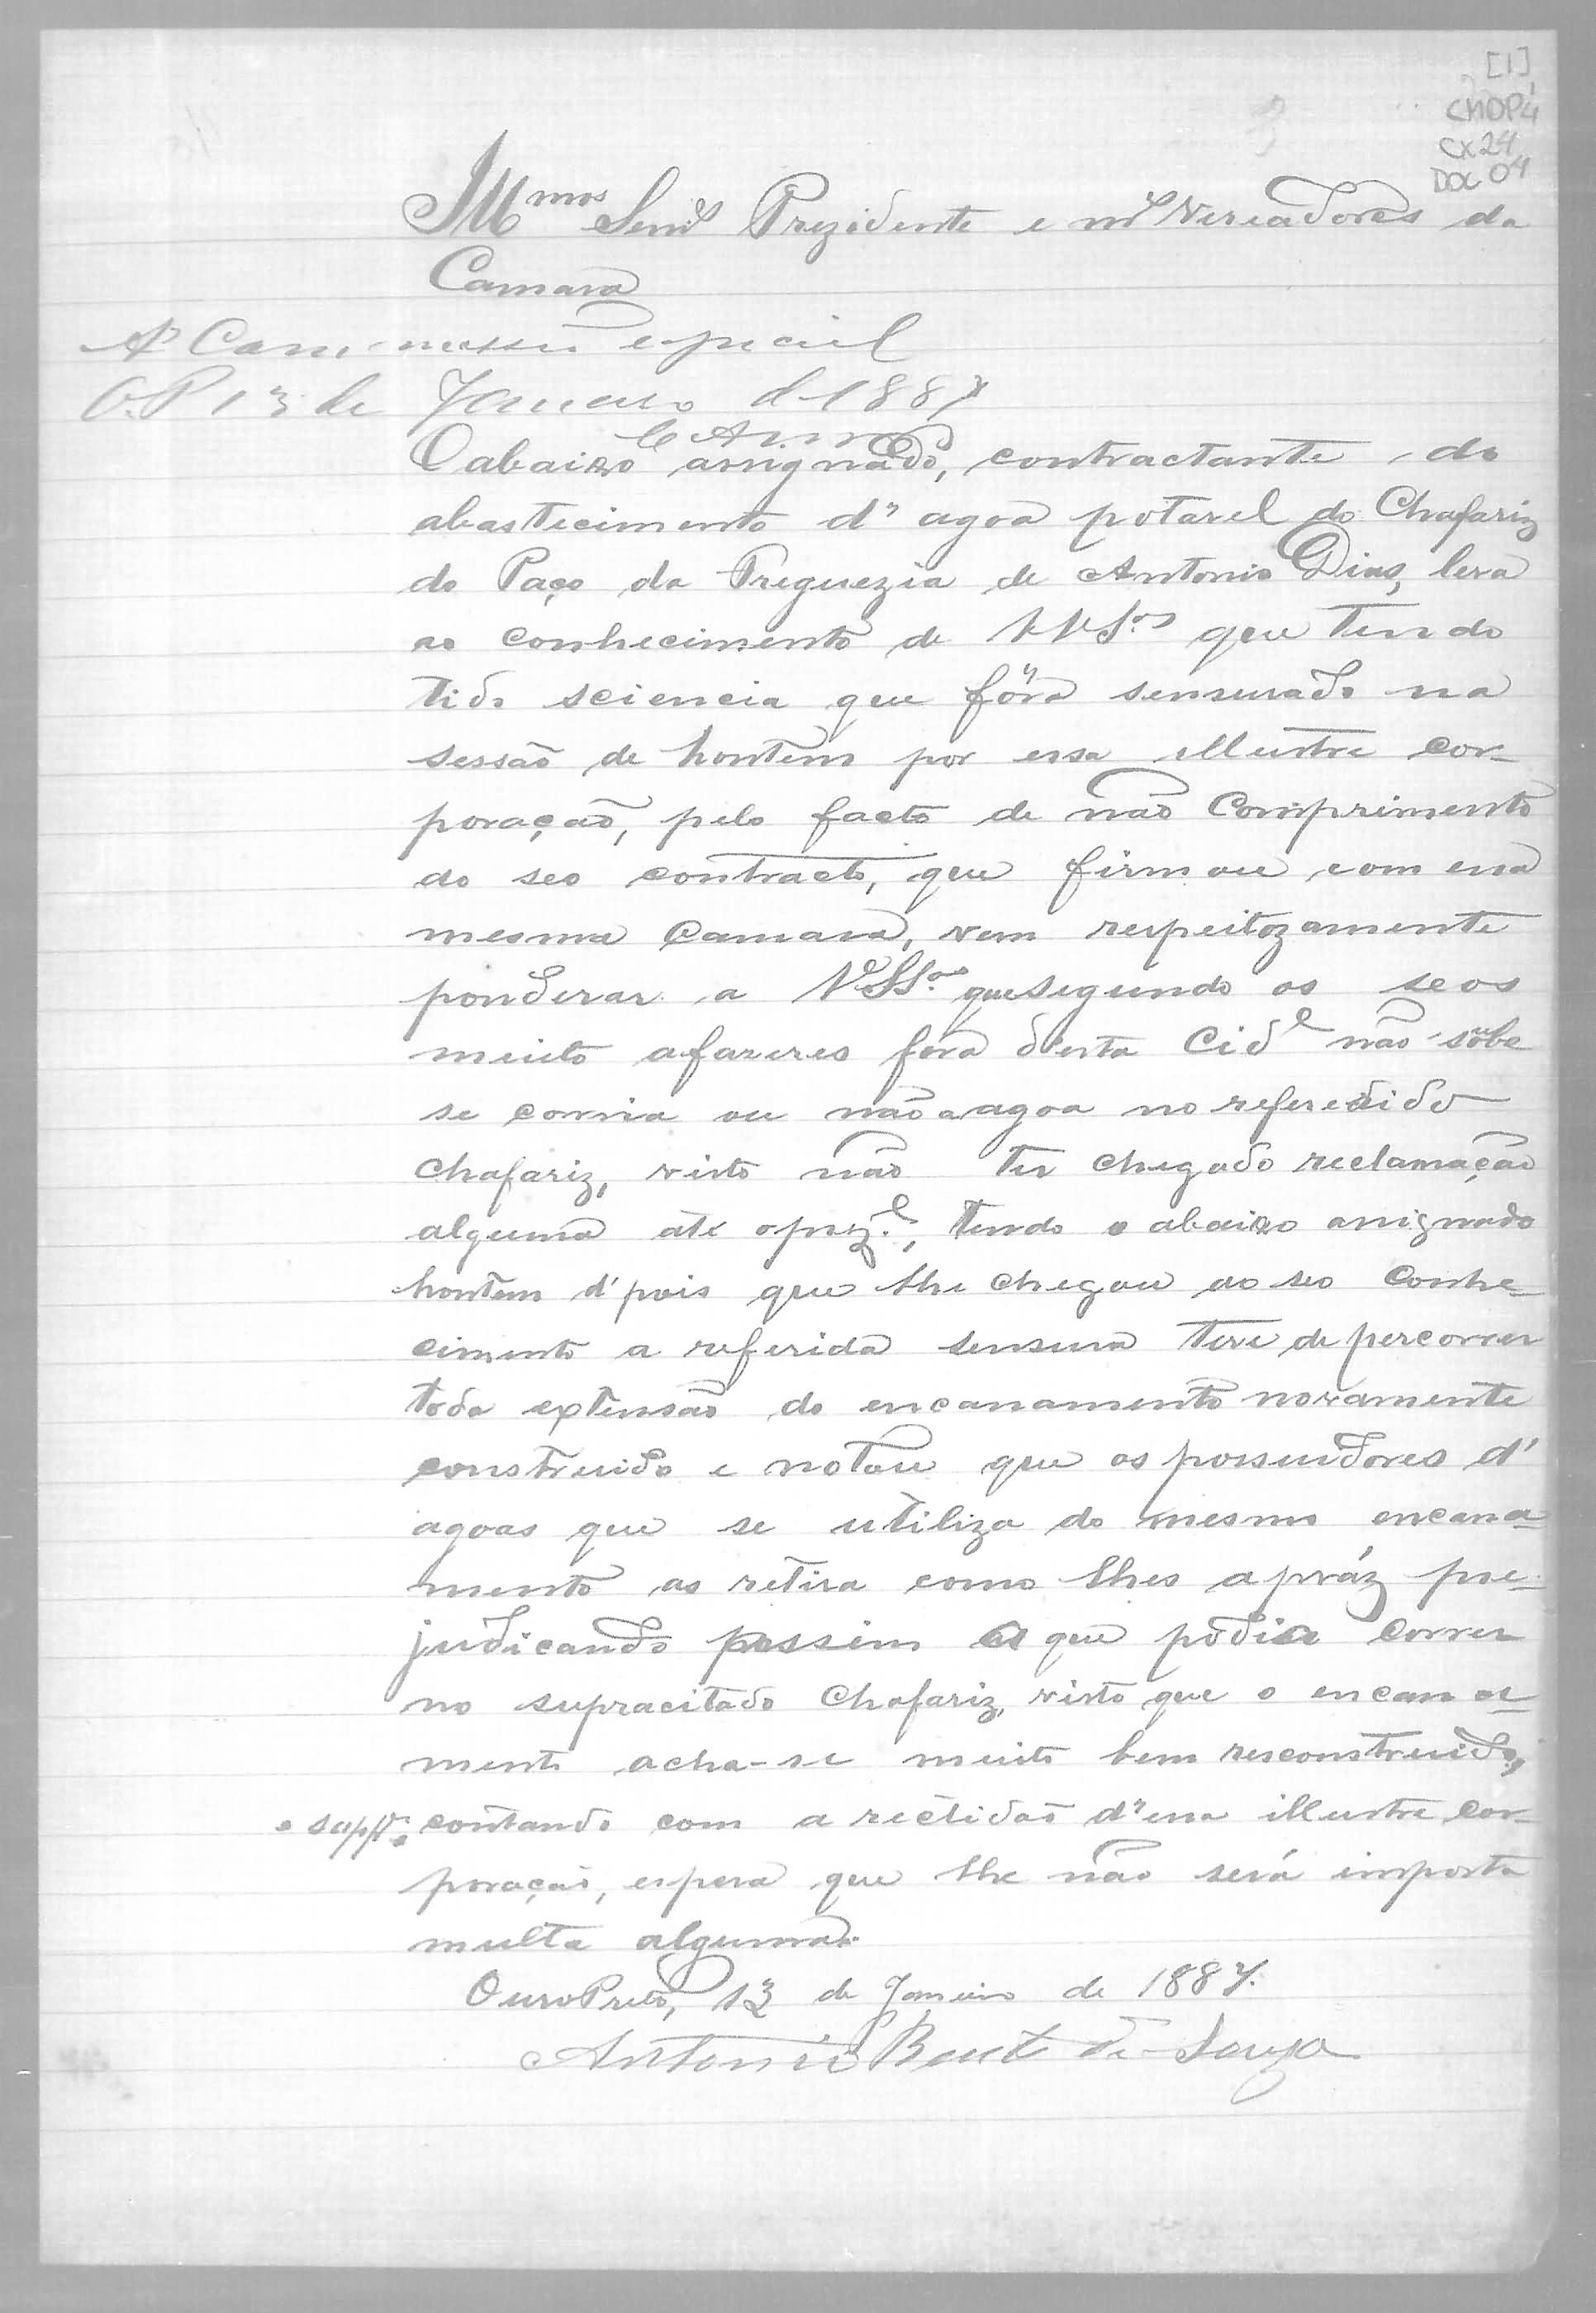 [1]
CMOP4
CX24
DOC 04
Illmos Senrs Prezidente e mrs Vereadores da
Camara
Aª Commissão especial
O.P. 13 de Janeiro d 1887
O abaixo assignado, contractante do
abastecimento d'agoa potavel do Chafariz
do Paço da Freguezia de Antonio Dias, leva
ao conhecimento de VVSas que tendo
tido sciencia que fôra sensurado na
sessão de hontem por essa illustre cor-
poração, pelo facto de não comprimento
do seo contracto, que firmou com essa
mesma Camara, vem respeitozamente
ponderar a VSSas que segundo os seos
muito afazeres fora d'esta Cide não soube
se corria ou não a agoa no referedido
chafariz, visto não ter chegado reclamação
alguma até o preze, tendo o abaixo assignado
hontem d'pois que lhe chegou ao seo conhe-
cimento a referida sensura teve de percorrer
toda extensão do encanamento novamente
construido e notou que os possuidores d'
agoas que se utiliza do mesmo encana-
mento as retira como lhes apráz pre-
judicando assim a que podia correr
no supracitado Chafariz, visto que o encana-
mento acha-se muito bem resconstruido,
o suppe contando com a rectidão d'essa illustre cor-
poração, espera que lhe não será imposta
multa alguma.
Ouro Preto, 13 de Janeiro de 1887.
Antonio Bent de Souza